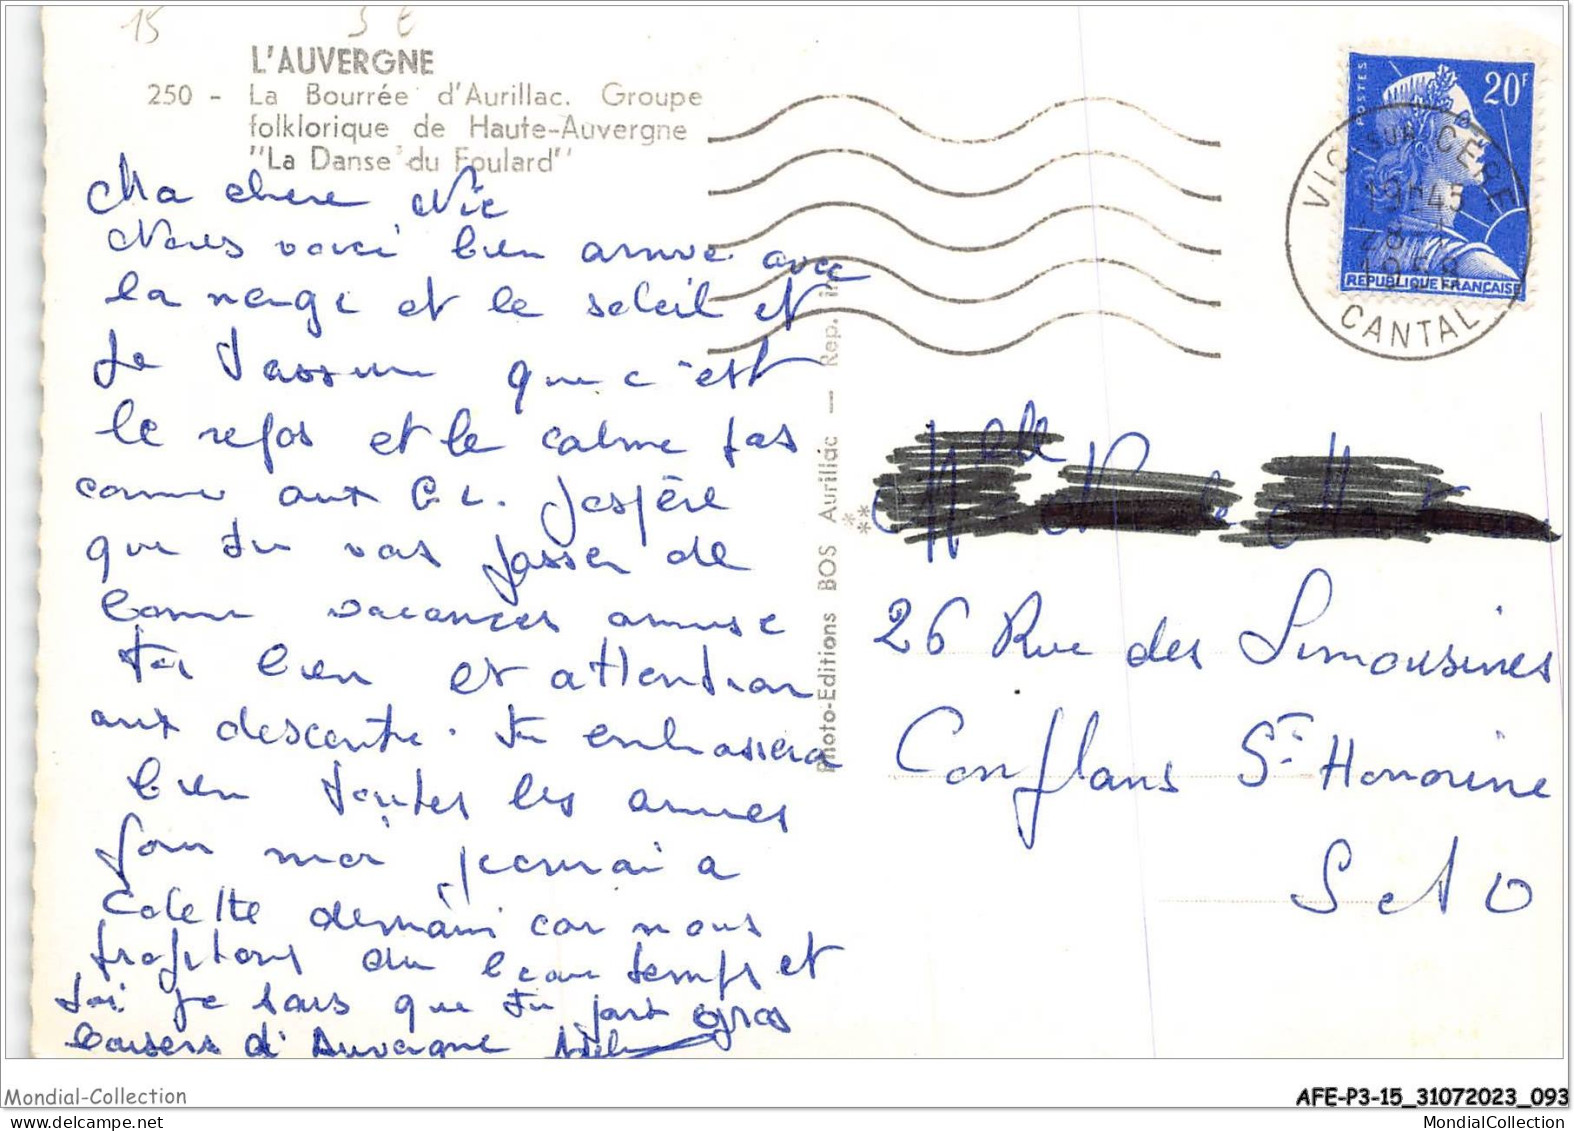 15 3 €
L'AUVERGNE
250 - La Bourrée d'Aurillac. Groupe
folklorique de Haute-Auvergne
"La Danse du Foulard"
Ma chere Nic
Nous voici bien arrivé avec
la neige et le soleil et
je t'assure que c'est
le repos et le calme pas
comme aux G L. J'espère
que tu vas passer de
bonne vacances amuse
toi bien et attention
aux descente. tu embrassera
bien toutes les amies
pour moi j'ecrirai a
Colette demain car nous
profitons du beau temps et
toi je sais que tu part gros
baisers d'Auvergne
Photo-Editions BOS Aurillac — Rep. in
POSTES
20F
REPUBLIQUE FRANÇAISE
VIC SUR CERE
19H45
28 - 1
1958
CANTAL
Melle
26 Rue des Limousines
Conflans St Honorine
S et O
Mondial-Collection
AFE-P3-15_31072023_093
MondialCollection